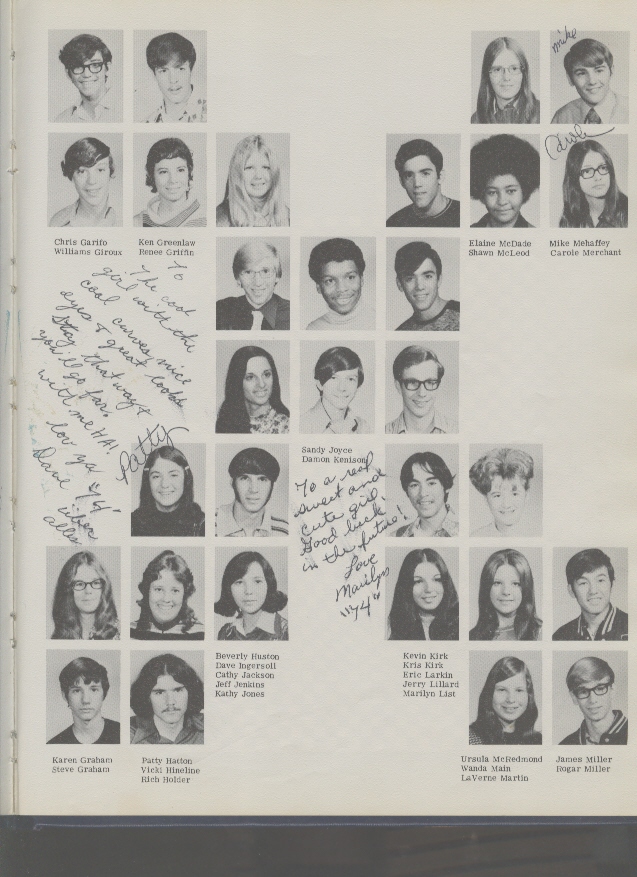 mike
Carole
Chris Garifo
Williams Giroux
Ken Greenlaw
Renee Griffin
Elaine McDade
Shawn McLeod
Mike Mehaffey
Carole Merchant
To
The cool
girl with the
cool curves, nice
eyes & great looks
Stay that way &
you'll go far.
with me HA!
lov ya
Dave "74"
Patty
Sandy Joyce
Damon Kenison
To a real
sweet and
cute girl.
Good luck
in the future!
Love
Marilyn
"74"
Beverly Huston
Dave Ingersoll
Cathy Jackson
Jeff Jenkins
Kathy Jones
Kevin Kirk
Kris Kirk
Eric Larkin
Jerry Lillard
Marilyn List
Karen Graham
Steve Graham
Patty Hatton
Vicki Hineline
Rich Holder
Ursula McRedmond
Wanda Main
LaVerne Martin
James Miller
Rogar Miller